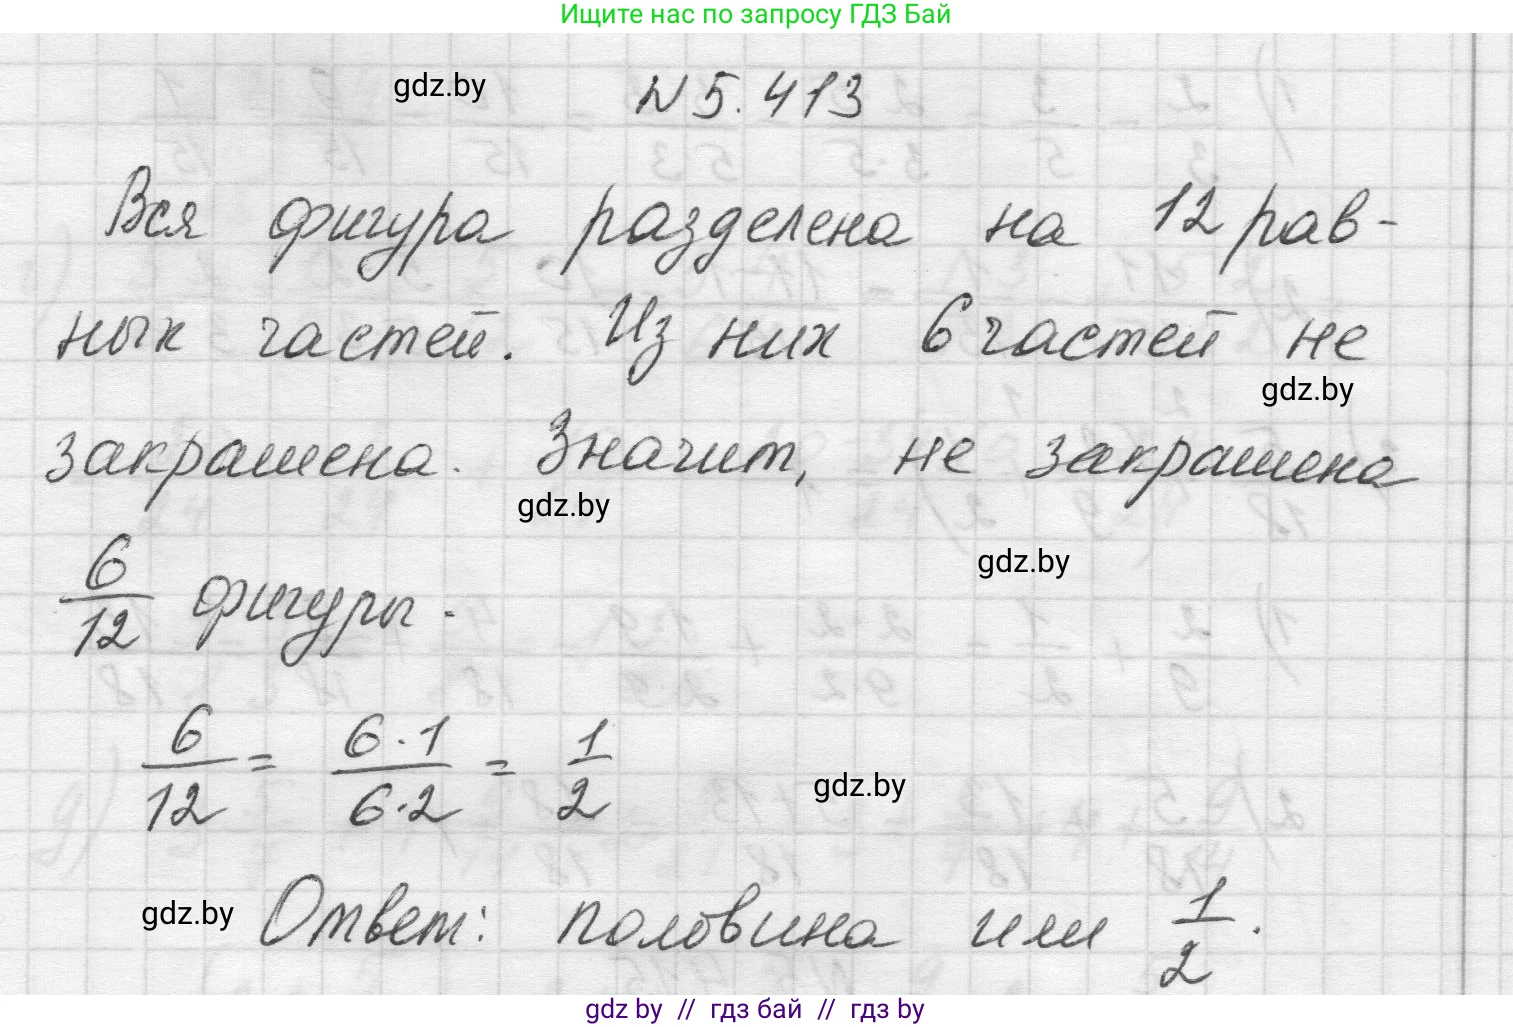 Ищите нас по запросу ГДЗ Бай
gdz.by
N 5.413
Вся фигура разделена на 12 рав-
ных частей. Из них 6 частей не
gdz.by
закрашена. Значит, не закрашена
gdz.by
gdz.by
6/12 фигуры.
6/12 = 6·1/6·2 = 1/2
gdz.by
gdz.by
Ответ: половина или 1/2.
gdz by // гдз бай // гдз by